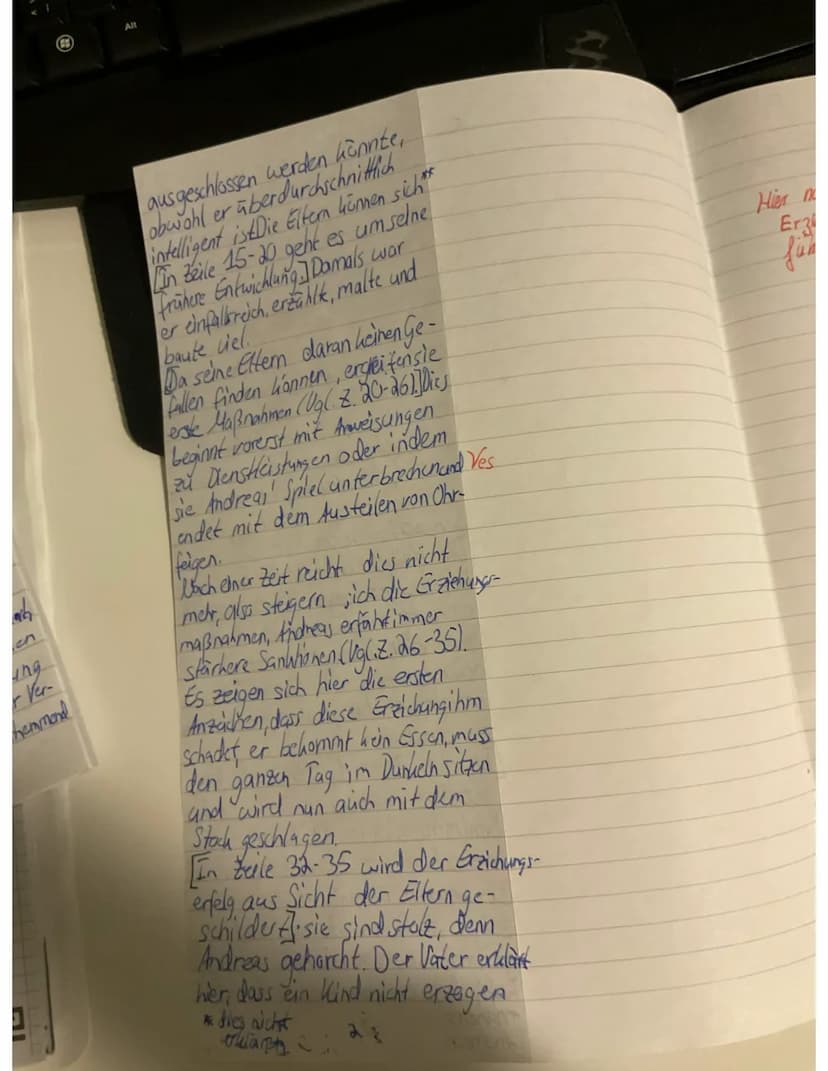 Alt
ausgeschlossen werden könnte,
obwohl er überdurchschnittlich
intelligent ist. Die Eltern können sich**
[In Zeile 15-20 geht es um seine
frühere Entwicklung.] Damals war
er einfallsreich, erzählt, malte und
baute viel.
[Da seine Eltern daran keinen Ge-
fallen finden können, ergreifen sie
erste Maßnahmen (Vgl. Z. 20-26).] Dies
beginnt vorerst mit Anweisungen
zu Dienstleistungen oder indem
sie Andreas' Spiel unterbrechen und
endet mit dem Austeilen von Ohr-
feigen.
Nach einer Zeit reicht dies nicht
mehr, also steigern sich die Erziehungs-
maßnahmen, Andreas erfährt immer
stärkere Sanktionen (Vgl. Z. 26-35).
Es zeigen sich hier die ersten
Anzeichen, dass diese Erziehung ihm
schadet, er bekommt kein Essen, muss
den ganzen Tag im Dunkeln sitzen
und wird nun auch mit dem
Stock geschlagen.
[In Zeile 32-35 wird der Erziehungs-
erfolg aus Sicht der Eltern ge-
schildert]: sie sind stolz, denn
Andreas gehorcht. Der Vater erklärt
hier, dass ein Kind nicht erzogen
* dies nicht
Hier